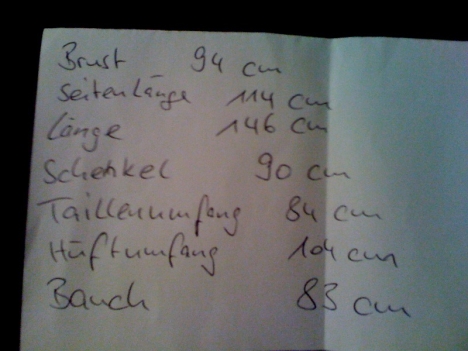 Brust 94 cm
Seitenlänge 114 cm
Länge 146 cm
Schenkel 90 cm
Taillenumfang 84 cm
Hüftumfang 104 cm
Bauch 83 cm